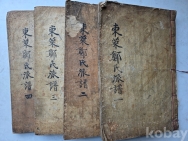 東萊鄭氏派譜 一
東萊鄭氏派譜 二
東萊鄭氏派譜 三
東萊鄭氏派譜 四
kobay